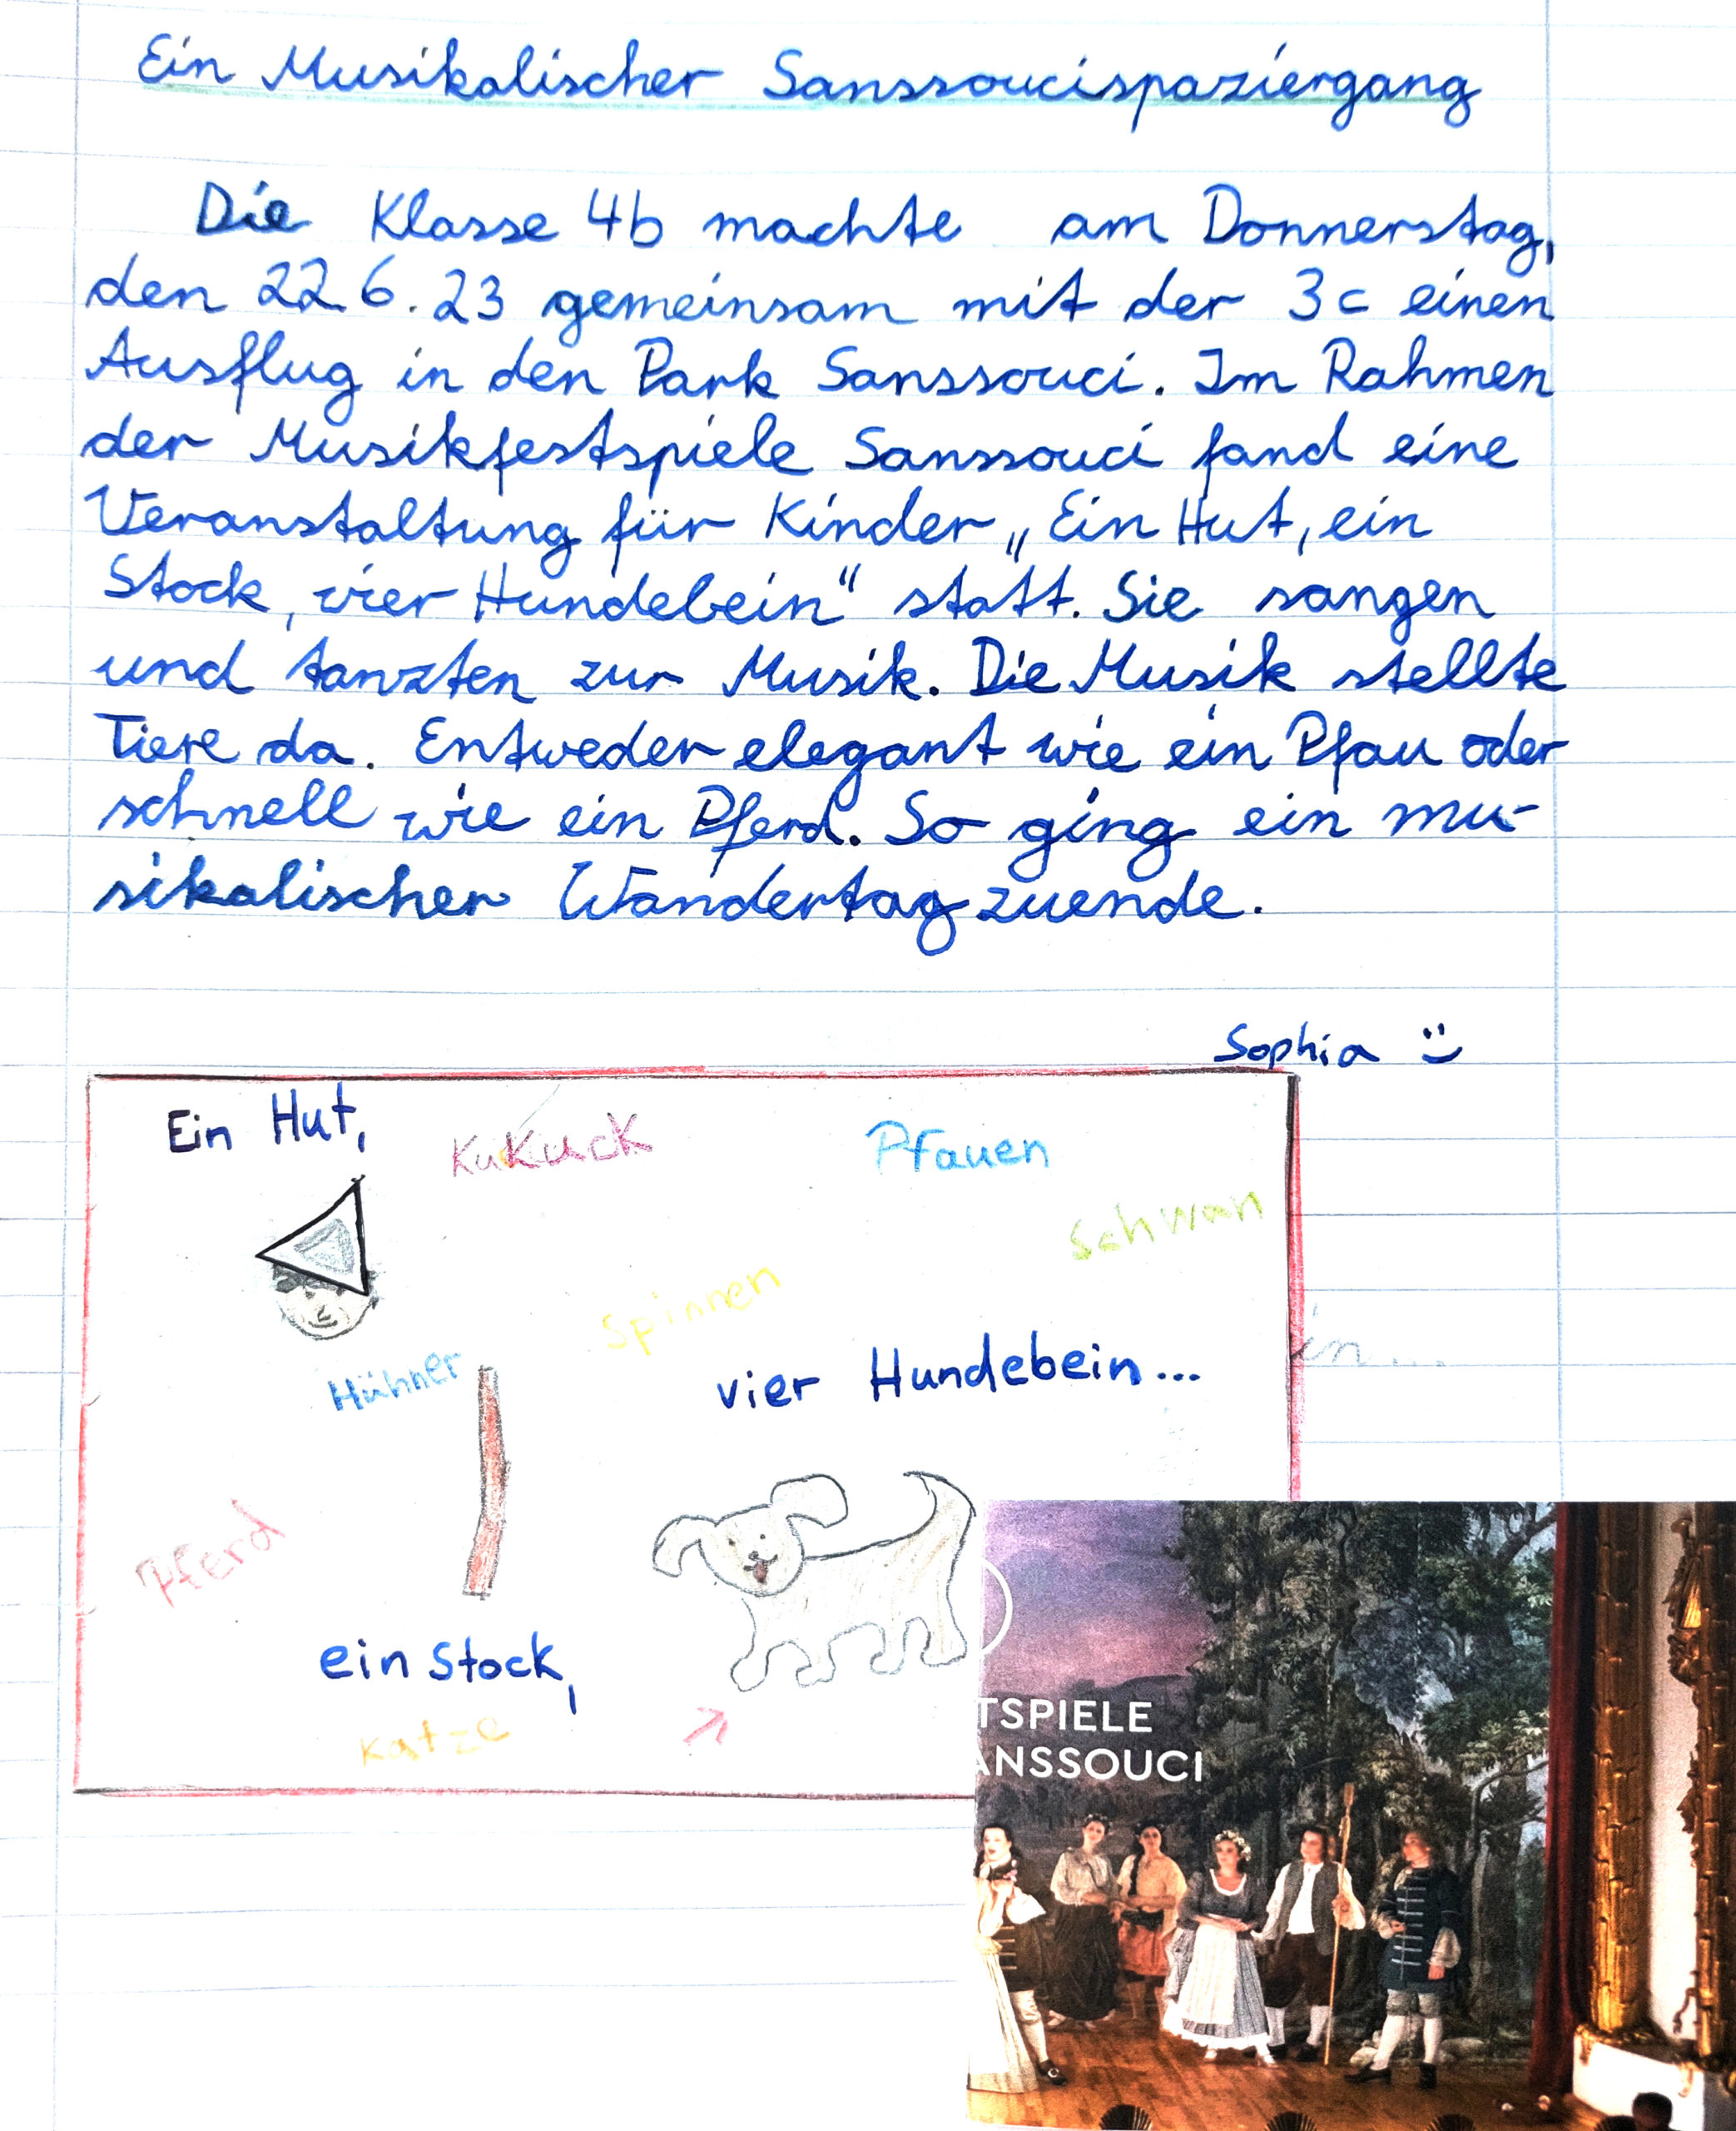 Ein Musikalischer Sanssoucispaziergang
Die Klasse 4b machte am Donnerstag,
den 22.6.23 gemeinsam mit der 3c einen
Ausflug in den Park Sanssouci. Im Rahmen
der Musikfestspiele Sanssouci fand eine
Veranstaltung für Kinder „Ein Hut, ein
Stock, vier Hundebein“ statt. Sie sangen
und tanzten zur Musik. Die Musik stellte
Tiere da. Entweder elegant wie ein Pfau oder
schnell wie ein Pferd. So ging ein mu-
sikalischer Wandertag zuende.
Sophia
Ein Hut,
Kukuck
Pfauen
Schwan
Spinnen
Hühner
vier Hundebein...
in...
Pferd
ein Stock,
Katze
TSPIELE
ANSSOUCI